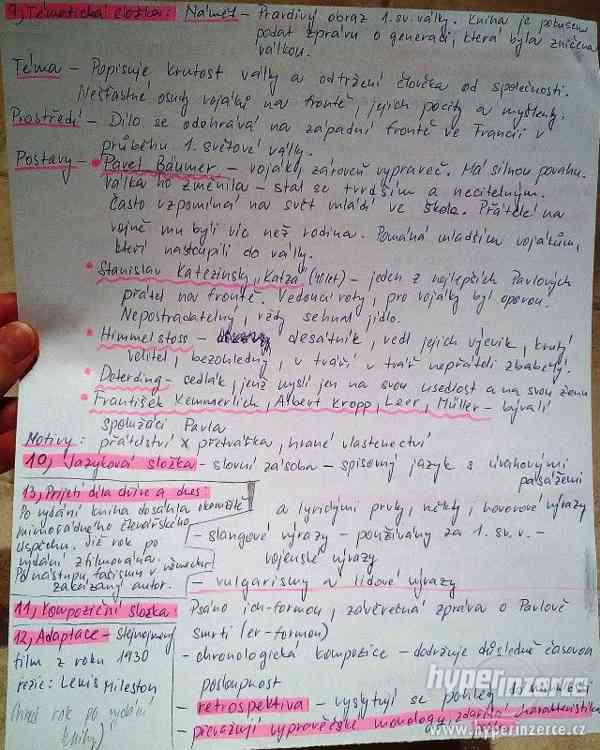 9, Tématická složka: Námět - Pravdivý obraz 1.sv.války. Kniha je pokusem
podat zprávu o generaci, která byla zničena
válkou.
Téma - Popisuje krutost války a odtržení člověka od společnosti.
Nešťastné osudy vojáků na frontě, jejich pocity a myšlenky.
Prostředí - Dílo se odehrává na západní frontě ve Francii v
průběhu 1. světové války.
Postavy - • Pavel Bäumer - voják, zároveň vypraveč. Má silnou povahu.
Válka ho změnila - stal se tvrdším a necitelným.
Často vzpomíná na svět mládí ve škole. Přátelé na
vojně mu byli víc než rodina. Pomáhá mladším vojákům,
kteří nastoupili do války.
• Stanislav Katezinsky "Katza" (40let) - jeden z nejlepších Pavlových
přátel na frontě. Vedoucí roty, pro vojáky byl oporou.
Nepostradatelný, vždy sehnal jídlo.
• Himmelstoss - desátník, vedl jejich výcvik, krutý
velitel, bezohledný, v tváří v tvář nepříteli zbabělý.
• Deterding - sedlák, jenž myslí jen na svou usedlost a na svou ženu
• František Kemmerlich, Albert Kropp, Leer, Müller - bývalí
spolužáci Pavla
Motivy: přátelství x přetvářka, hrané vlastenectví
10, Jazyková složka - slovní zásoba - spisovný jazyk s úvahovými
pasážemi
a lyrickými prvky, někdy, hovorové výrazy
- slangové výrazy - používány za 1. sv. v. -
vojenské výrazy
- vulgarismy a lidové výrazy
13, Přijetí díla dříve a dnes:
Po vydání kniha dosáhla okamžitě
mimořádného čtenářského
úspěchu. Již rok po
vydání zfilmována.
Po nástupu fašismu v německu
zakázaný autor.
11, Kompoziční složka: Psáno ich-formou, závěrečná zpráva o Pavlově
smrti (er-formou)
- chronologická kompozice - dodržuje důsledně časovou
posloupnost
- retrospektiva - vyskytují se pohledy
- převažují vypravěčské monology, zdařilá charakteristika
12, Adaptace - stejnojmenný
film z roku 1930
režie: Lewis Mileston
(hned rok po vydání
knihy)
hyperinzerce
www.hyperinzerce.cz